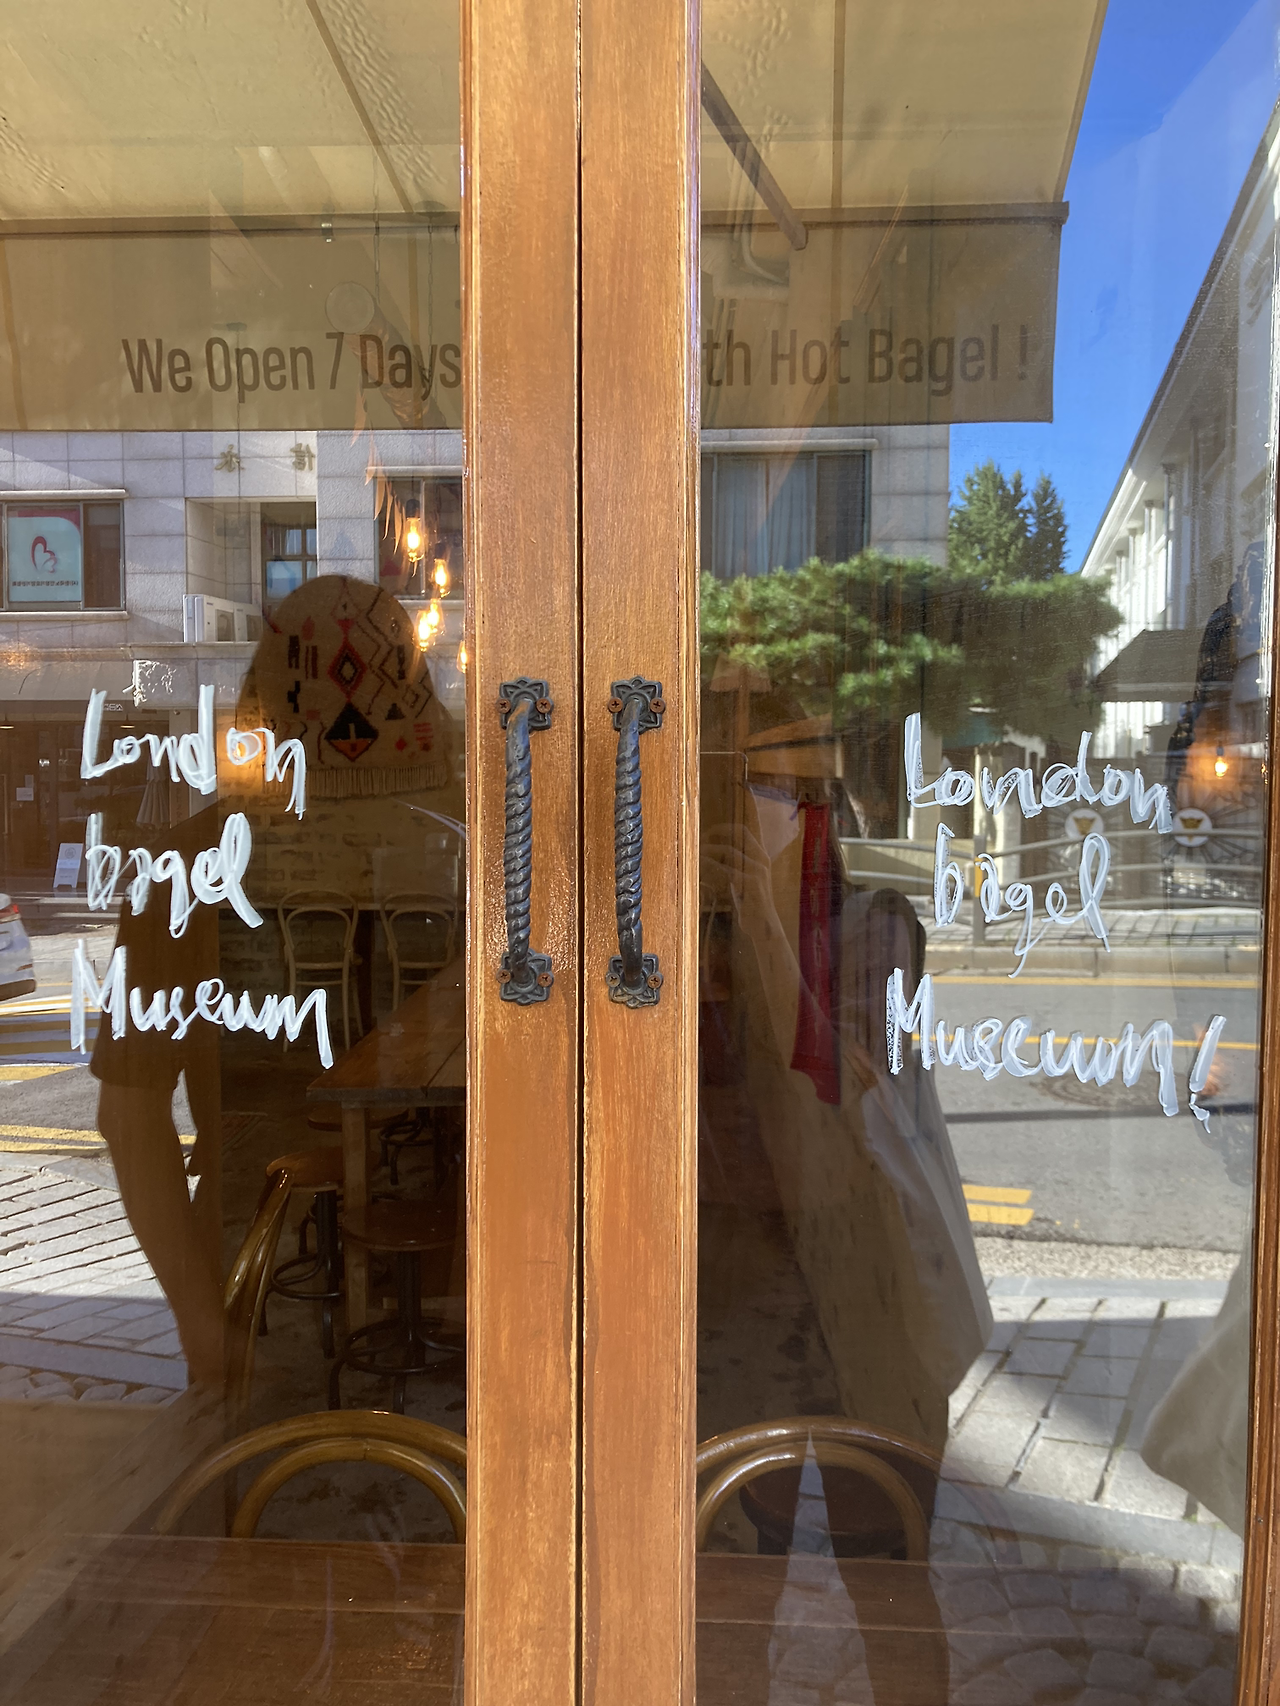 We Open 7 Days
th Hot Bagel !
London
bagel
Museum
London
bagel
Museum!